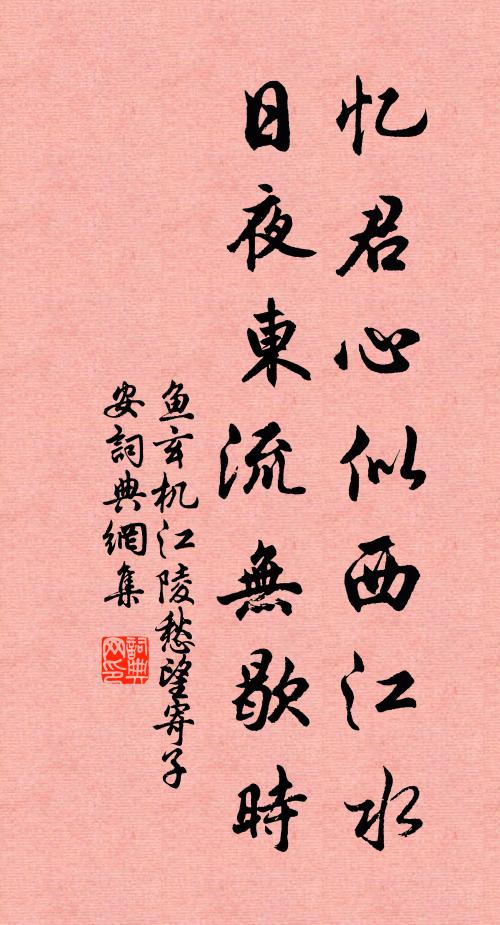 忆君心似西江水
日夜東流無歇時
鱼玄机江陵愁望寄子
安詞典網集
詞典
网印